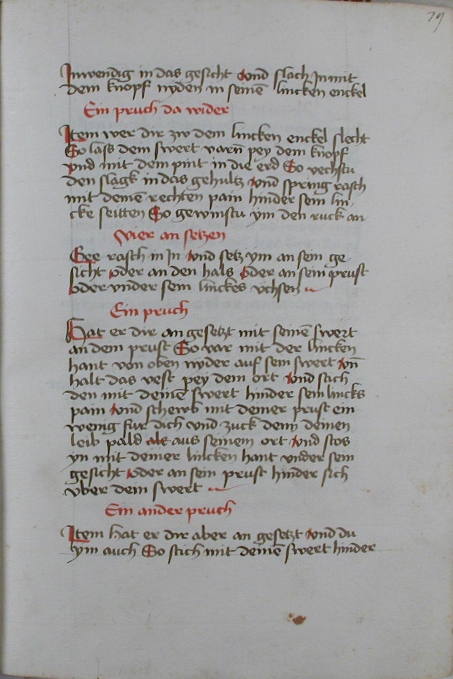 79
Inwendig in das gesicht vnd slach In mit
dem knopf nyden in seinē lincken enckel
Ein pruch da wider
Item wer dir zw dem lincken enckel slecht
So lass dem swert varñ pey dem knopf
vnd mit dem pint in die erd So vechstu
den slagk in das gehultz vnd spring rasch
mit deinē rechten pain hinder sein lin
cke seitten So gewinstu ym den ruck an
Vier an setzen
Gee rasch in In vnd setz ym an sein ge
sicht oder an den hals oder an sein prust
oder vnder sein linckes vchsen
Ein pruch
Hat er dir an gesetzt mit seinē swert
an dem prust So var mit der lincken
hant von oben nyder auf sein swert vn̄
halt das vest pey dem ort vnd stich
den mit deinē swert hinder sein lincks
pain vnd scheub mit deiner prust ein
wenig fur dich vnd zuck denn deinen
leib pald als aus seinem ort vnd stos
yn mit deiner lincken hant vnder sein
gesicht oder an sein prust hinder sich
vber dem swert
Ein ander pruch
Item hat er dir aber an gesetzt vnd du
ym auch So stich mit deinē swert hinder